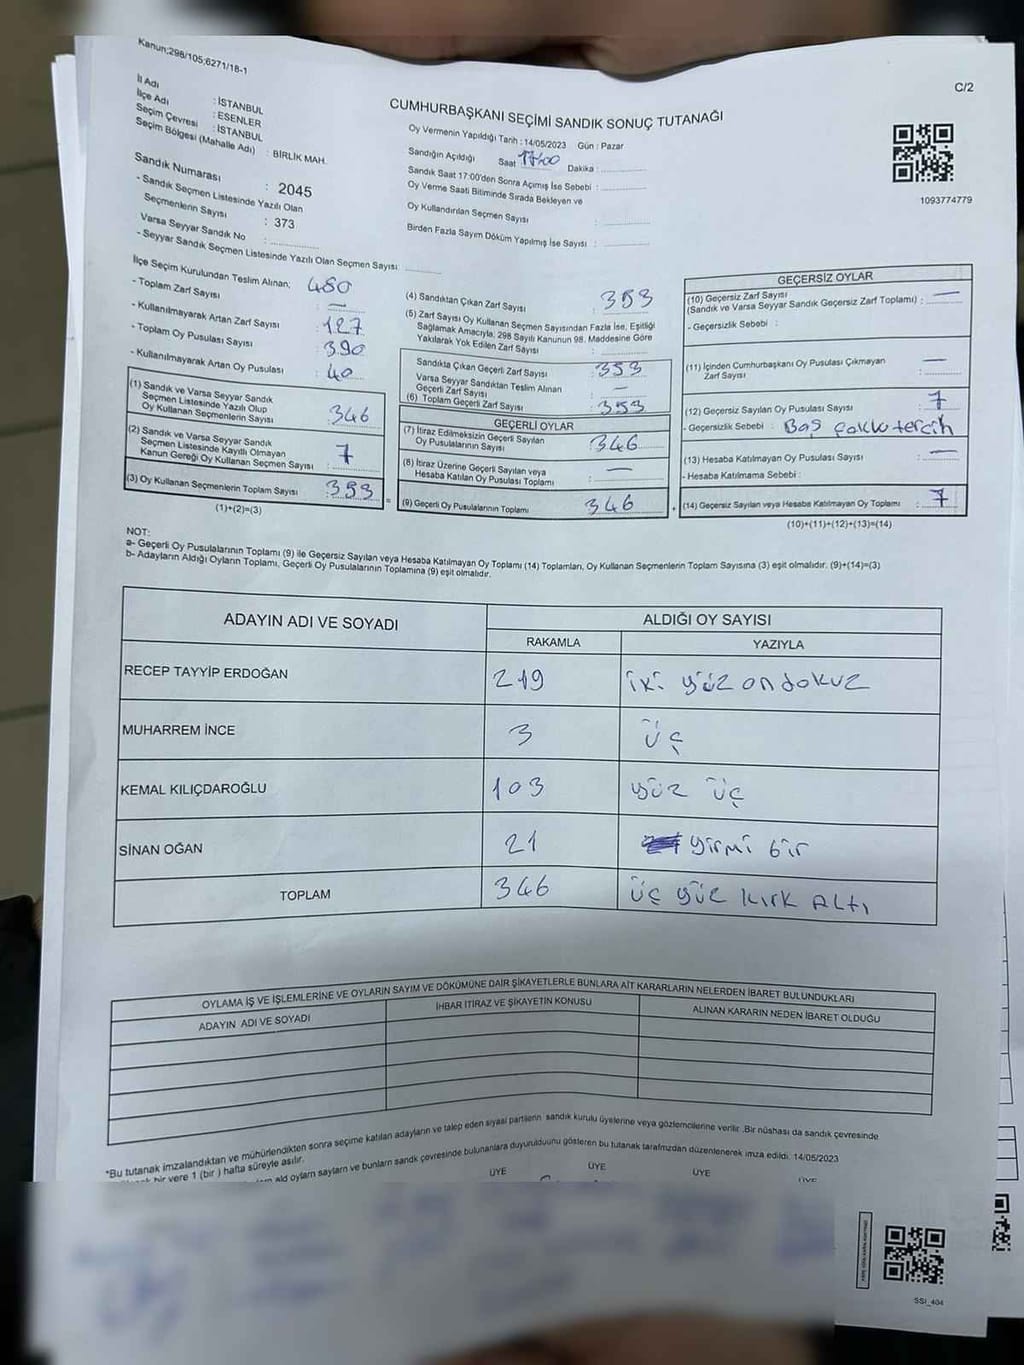 Kanun;298/105;6271/18-1
C/2
İl Adı : İSTANBUL
İlçe Adı : ESENLER
Seçim Çevresi : İSTANBUL
Seçim Bölgesi (Mahalle Adı) : BİRLİK MAH.
Sandık Numarası : 2045
- Sandık Seçmen Listesinde Yazılı Olan
Seçmenlerin Sayısı : 373
Varsa Seyyar Sandık No :
- Seyyar Sandık Seçmen Listesinde Yazılı Olan Seçmen Sayısı:
CUMHURBAŞKANI SEÇİMİ SANDIK SONUÇ TUTANAĞI
Oy Vermenin Yapıldığı Tarih : 14/05/2023 Gün : Pazar
Sandığın Açıldığı Saat 17:00 Dakika :
Sandık Saat 17:00'den Sonra Açımış İse Sebebi :
Oy Verme Saati Bitiminde Sırada Bekleyen ve
Oy Kullandırılan Seçmen Sayısı :
Birden Fazla Sayım Döküm Yapılmış İse Sayısı :
1093774779
İlçe Seçim Kurulundan Teslim Alınan; 480
- Toplam Zarf Sayısı : —
- Kullanılmayarak Artan Zarf Sayısı : 127
- Toplam Oy Pusulası Sayısı : 390
- Kullanılmayarak Artan Oy Pusulası : 40
(1) Sandık ve Varsa Seyyar Sandık
Seçmen Listesinde Yazılı Olup
Oy Kullanan Seçmenlerin Sayısı : 346
(2) Sandık ve Varsa Seyyar Sandık
Seçmen Listesinde Kayıtlı Olmayan
Kanun Gereği Oy Kullanan Seçmen Sayısı : 7
(3) Oy Kullanan Seçmenlerin Toplam Sayısı : 353
(1)+(2)=(3)
(4) Sandıktan Çıkan Zarf Sayısı : 353
(5) Zarf Sayısı Oy Kullanan Seçmen Sayısından Fazla İse, Eşitliği
Sağlamak Amacıyla; 298 Sayılı Kanunun 98. Maddesine Göre
Yakılarak Yok Edilen Zarf Sayısı :
Sandıkta Çıkan Geçerli Zarf Sayısı : 353
Varsa Seyyar Sandıktan Teslim Alınan
Geçerli Zarf Sayısı : —
(6) Toplam Geçerli Zarf Sayısı : 353
=
GEÇERLİ OYLAR
(7) İtiraz Edilmeksizin Geçerli Sayılan
Oy Pusulalarının Sayısı : 346
(8) İtiraz Üzerine Geçerli Sayılan veya
Hesaba Katılan Oy Pusulası Toplamı : —
(9) Geçerli Oy Pusulalarının Toplamı 346
+
GEÇERSİZ OYLAR
(10) Geçersiz Zarf Sayısı
(Sandık ve Varsa Seyyar Sandık Geçersiz Zarf Toplamı) : —
- Geçersizlik Sebebi :
(11) İçinden Cumhurbaşkanı Oy Pusulası Çıkmayan
Zarf Sayısı : —
(12) Geçersiz Sayılan Oy Pusulası Sayısı : 7
- Geçersizlik Sebebi : Boş çoklu tercih
(13) Hesaba Katılmayan Oy Pusulası Sayısı : —
- Hesaba Katılmama Sebebi :
(14) Geçersiz Sayılan veya Hesaba Katılmayan Oy Toplamı : 7
(10)+(11)+(12)+(13)=(14)
NOT:
a- Geçerli Oy Pusulalarının Toplamı (9) ile Geçersiz Sayılan veya Hesaba Katılmayan Oy Toplamı (14) Toplamları, Oy Kullanan Seçmenlerin Toplam Sayısına (3) eşit olmalıdır. (9)+(14)=(3)
b- Adayların Aldığı Oyların Toplamı, Geçerli Oy Pusulalarının Toplamına (9) eşit olmalıdır.
ADAYIN ADI VE SOYADI
ALDIĞI OY SAYISI
RAKAMLA YAZIYLA
RECEP TAYYİP ERDOĞAN 219 iki yüz on dokuz
MUHARREM İNCE 3 üç
KEMAL KILIÇDAROĞLU 103 yüz üç
SİNAN OĞAN 21 yirmi bir
TOPLAM 346 üç yüz kırk ALTI
OYLAMA İŞ VE İŞLEMLERİNE VE OYLARIN SAYIM VE DÖKÜMÜNE DAİR ŞİKAYETLERLE BUNLARA AİT KARARLARIN NELERDEN İBARET BULUNDUKLARI
ADAYIN ADI VE SOYADI
İHBAR İTİRAZ VE ŞİKAYETİN KONUSU
ALINAN KARARIN NEDEN İBARET OLDUĞU
"Bu tutanak imzalandıktan ve mühürlendikten sonra seçime katılan adayların ve talep eden siyasi partilerin sandık kurulu üyelerine veya gözlemcilerine verilir .Bir nüshası da sandık çevresinde
bir yere 1 (bir ) hafta süreyle asılır.
ald oylam sayların ve bunların sandk çevresinde bulunanlara duyurulduunu gösteren bu tutanak tarafmzdan düzenlenerek imza edildi. 14/05/2023
ÜYE ÜYE ÜYE ÜYE
SSİ_404